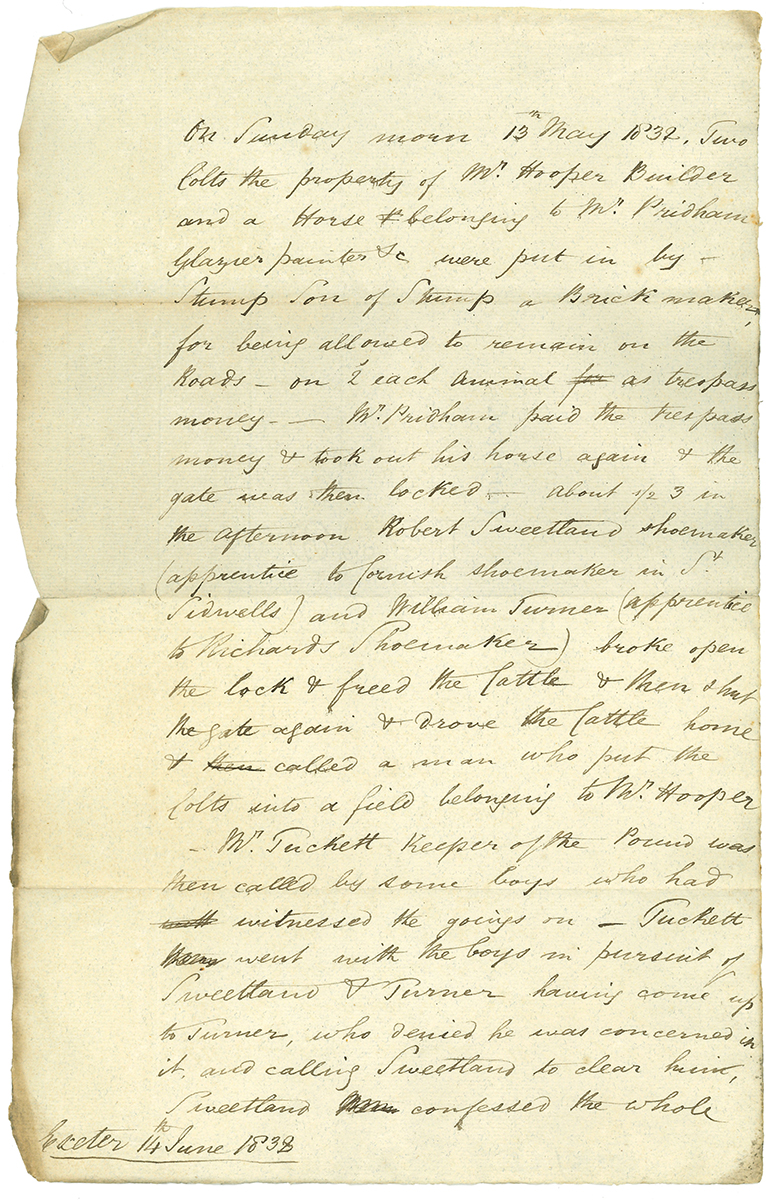 On Sunday morn 13th May 1832. Two
Colts the property of Mr Hooper Builder
and a Horse belonging to Mr. Pridham
Glazier painter &c were put in by -
Stump Son of Stump a Brick maker,
for being allowed to remain on the
Roads - on 2s each Animal for as trespass
money - - Mr. Pridham paid the trespass
money & took out his horse again & the
gate was then locked - about 1/2 3 in
the afternoon Robert Sweetland shoemaker
(apprentice to Cornish shoemaker in St.
Sidwells) and William Turner (apprentice
to Richards Shoemaker) broke open
the lock & freed the Cattle & then shut
the gate again & drove the Cattle home
& then called a man who put the
Colts into a field belonging to Mr. Hooper
- Mr. Tuckett Keeper of the Pound was
then called by some boys who had
witnessed the goings on - Tuckett
went with the boys in pursuit of
Sweetland & Turner having come up
to Turner, who denied he was concerned in
it, and calling Sweetland to clear him,
Sweetland confessed the whole
Exeter 14th June 1832